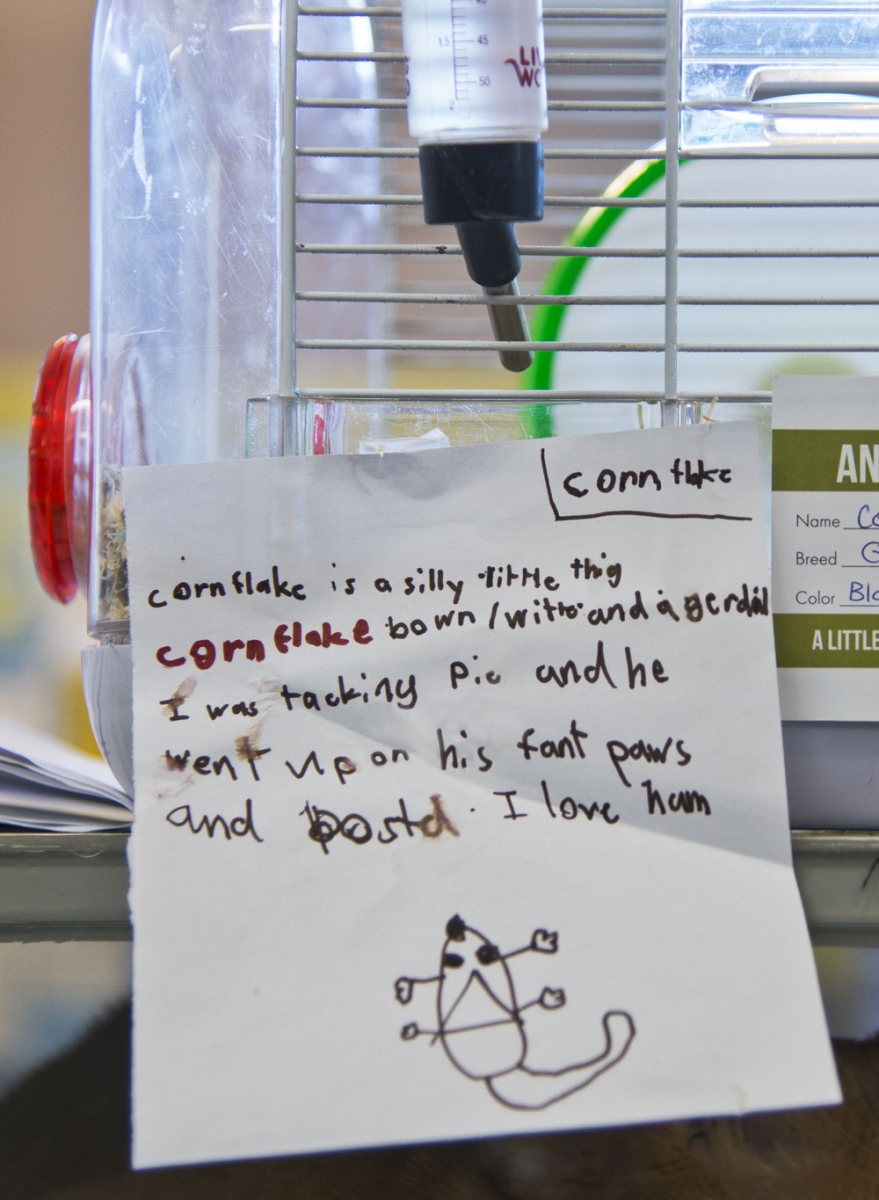 15
45
50
2
LI
WC
cornflake
cornflake is a silly little thig
cornflake bown / witte and a gerdil
I was tacking pic and he
went up on his fant paws
and postd. I love ham
AN
Name Co
Breed G
Color Blc
A LITTLE